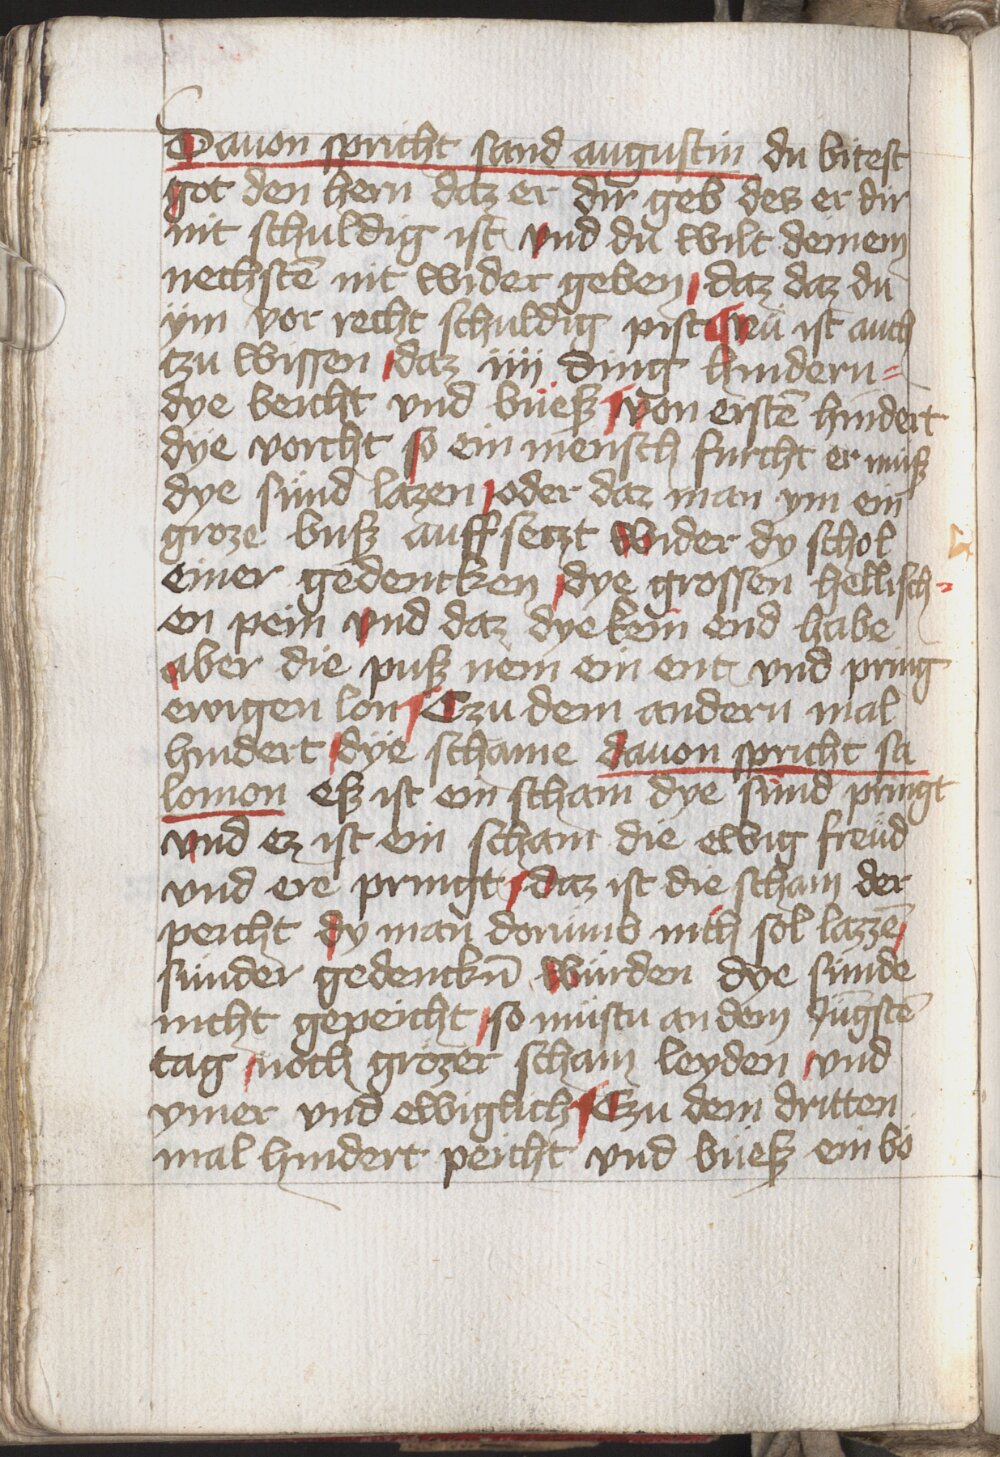 Dauon spricht sand augustin du bitest
got den hern daz er dir geb des er dir
nit schuldig ist vnd du wilt deinem
nechstē nit wider geben daz daz du
ym vor recht schuldig pist Nu ist auch
tzu wissen daz iiij ding hindern
dye beicht vnd bueß von erstē hindert
dye vorcht so ein mensch furcht er muß
dye sünd lazen oder daz man ym ein
groze buß auff seczt wider dy schol
einer gedencken dye grossen hellisch-
en pein vnd daz dye kein end habe
aber die puß nem ein ent vnd pring
ewigen lon Czu dem andern mal
hindert dye schame dauon spricht sa
lomon eß ist ein scham dye sünd pringt
vnd ez ist ein scham die ewig freüd
vnd ere pringt daz ist die scham der
peicht dy man dorumb nich sol lazzē
sunder gedenckn̄ würden dye sunde
nicht gepeicht so mustu an dem Jūgstē
tag noch grözer scham leyden vnd
ymer vnd ewiglich Czu dem dritten
mal hindert peicht vnd bueß ein bö